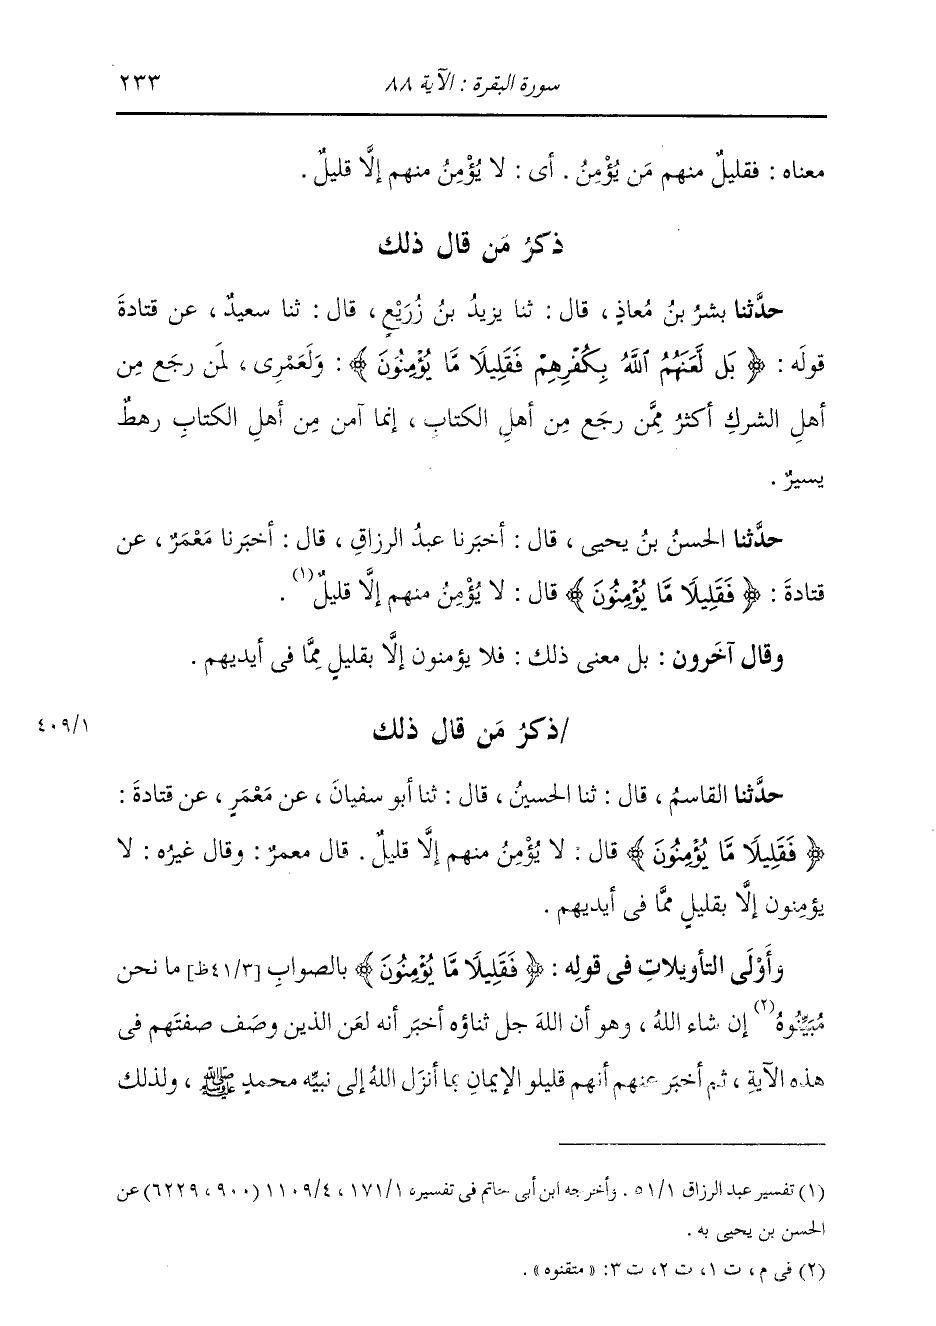 سورة البقرة : الآية ٨٨
٢٣٣
معناه : فقليلٌ منهم مَن يُؤْمِنُ . أى : لا يُؤْمِنُ منهم إلَّا قليلٌ .
ذكرُ مَن قال ذلك
حدَّثنا بشرُ بنُ مُعاذٍ ، قال : ثنا يزيدُ بنُ زُرَيْعٍ ، قال : ثنا سعيدٌ ، عن قتادةَ
قولَه : ﴿ بَل لَّعَنَهُمُ ٱللَّهُ بِكُفْرِهِمْ فَقَلِيلًا مَّا يُؤْمِنُونَ ﴾ : وَلَعَمْرِى ، لمَن رجَع مِن
أهلِ الشركِ أكثرُ ممَّن رجَع مِن أهلِ الكتابِ ، إنما آمن مِن أهلِ الكتابِ رهطٌ
يسيرٌ .
حدَّثنا الحسنُ بنُ يحيى ، قال : أخبَرنا عبدُ الرزاقِ ، قال : أخبَرنا مَعْمَرٌ ، عن
قتادةَ : ﴿ فَقَلِيلًا مَّا يُؤْمِنُونَ ﴾ قال : لا يُؤْمِنُ منهم إلَّا قليلٌ(١) .
وقال آخَرون : بل معنى ذلك : فلا يؤمنون إلَّا بقليلٍ ممَّا فى أيديهم .
/ذكرُ مَن قال ذلك
٤٠٩/١
حدَّثنا القاسمُ ، قال : ثنا الحسينُ ، قال : ثنا أبو سفيانَ ، عن مَعْمَرٍ ، عن قتادةَ :
﴿ فَقَلِيلًا مَّا يُؤْمِنُونَ ﴾ قال : لا يُؤْمِنُ منهم إلَّا قليلٌ . قال معمرٌ : وقال غيرُه : لا
يؤمِنون إلَّا بقليلٍ ممَّا فى أيديهم .
وأَوْلَى التأويلاتِ فى قولِه : ﴿ فَقَلِيلًا مَّا يُؤْمِنُونَ ﴾ بالصوابِ [٤١/٣ظ] ما نحن
مُبَيِّنُوهُ(٢) إن شاء اللهُ ، وهو أن اللهَ جل ثناؤه أخبَر أنه لعَن الذين وصَف صفتَهم فى
هذه الآيةِ ، ثم أخبَر عنهم أنهم قليلو الإيمانِ بما أنزَل اللهُ إلى نبيِّه محمدٍ ﷺ ، ولذلك
(١) تفسير عبد الرزاق ٥١/١ . وأخرجه ابن أبى حاتم فى تفسيره ١٧١/١ ، ١١٠٩/٤ (٩٠٠ ، ٦٢٢٩) عن
الحسن بن يحيى به .
(٢) فى م ، ت ١، ت ٢، ت ٣: « متقنوه » .